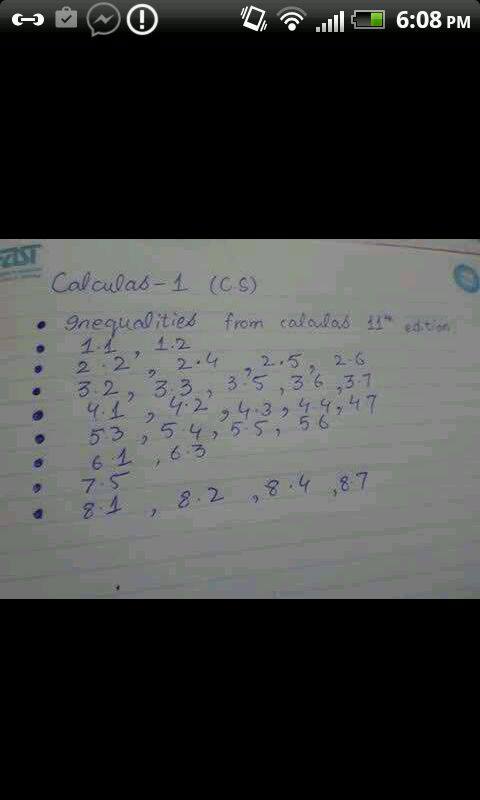 6:08 PM
FAST
Calculas-1 (C.S)
• Inequalities from calculas 11th edition
• 1.1, 1.2
• 2.2, 2.4, 2.5, 2.6
• 3.2, 3.3, 3.5, 3.6, 3.7
• 4.1, 4.2, 4.3, 4.4, 4.7
• 5.3, 5.4, 5.5, 5.6
• 6.1, 6.3
• 7.5
• 8.1, 8.2, 8.4, 8.7